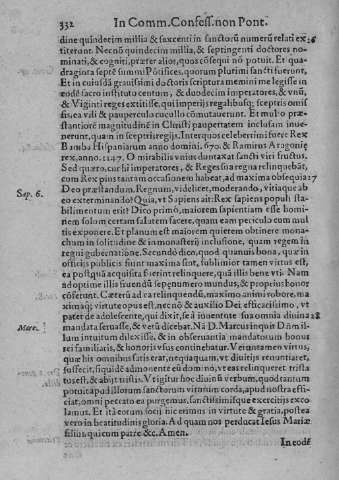 332 In Comm. Confess. non Pont.
dine quindecim millia & sexcenti in sanctorũ numerũ relati ex 26
titerant. Necnõ quindecim millia, & septingenti doctores no-
minati, & cogniti, præter alios, quos cõsequi nõ potuit. Et qua-
draginta septẽ summi Põtifices, quorum plurimi sancti fuerunt,
Et in cuiusdã grauissimi doctoris scriptura memini me legisse in
eodẽ sacro instituto centum, & duodecim imperatores, & vnũ,
& Viginti reges extitisse, qui imperijs regalibusq; sceptris omis
sis, ea vili & pauperculo cucullo cõmutauerunt. Et multo præ-
stantiorẽ magnitudinẽ in Christi paupertatem inclusam inue-
nerunt, quàm in sceptris regijs. Inter quos celeberrimi fuere Rex
Bamba Hispaniarum anno domini. 670. & Ramirus Aragoniæ
rex, anno. 1147. O mirabilis vnius duntaxat sancti viri fructus.
Sed quæro, cur hi imperatores, & Reges sua regna relinquebãt,
cum Rex pius tantam occasionem habeat, ad maxima obsequia 27
Deo præstandum. Regnum, videlicet, moderando, vitiaque ab
Sap. 6. eo exterminando? Quia, vt Sapiens ait: Rex sapiens populi sta-
bilimentum est? Dico primò, maiorem sapientiam esse homi
nem solum certam salutem facere, quam eam periculo cum mul
tis exponere. Et planum est maiorem quietem obtinere mona-
chum in solitudine & in monasterij inclusione, quam regem in
regni gubernatione. Secundò dico, quod quanuis bona, quæ in
officijs publicis fiunt maxima sint, sublimior tamen virtus est,
ea postquã acquisita fuerint relinquere, quã illis bene vti. Nam
ad optime illis fruendũ sæpenumero mundus, & proprius honor
cõferunt. Cæterũ ad ea relinquendũ, maximo animi robore, ma
ximaq; virtute opus est, necnõ & auxilio Dei efficacissimo, vt
patet de adolescente, qui dixit, se à inuentute sua omnia diuina 28
Marc. mandata seruasse, & verũ dicebat. Nã D. Marcus inquit Dñm il-
lum intuitum dilexisse, & in obseruantia mandatorum bonus
rei familiaris, & honoris vsus continebatur. Veruntamen virtus,
quæ his omnibus satis erat, nequaquam, vt diuitijs renuntiaret,
suffecit, siquidẽ admonente eũ domino, vt eas relinqueret: trista
tus est, & abijt tristis. Vt igitur hoc diuinũ verbum, quodtantum
potuit apud illorum sanctorum virorum corda, apud nostra effi-
ciat, omni peccato ea purgemus, sanctissimisque exercitijs exco
lamus. Et ità eorum socij hic erimus in virtute & gratia, postea
vero in beatitudinis gloria. Ad quam nos perducat Iesus Mariæ
filius qui cum patre &c. Amen.
In eodẽ